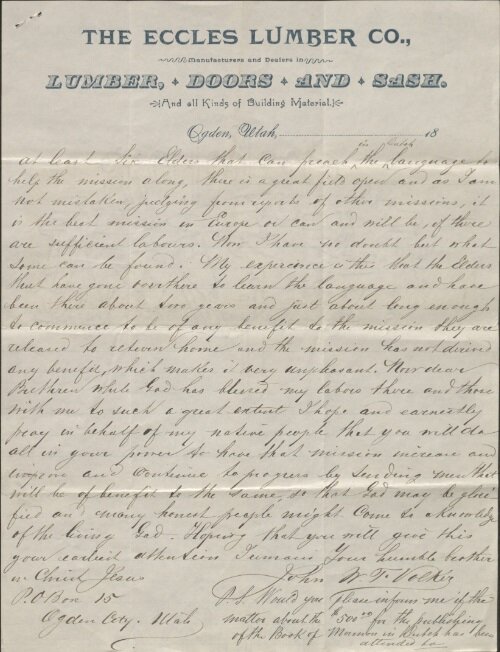 THE ECCLES LUMBER CO.,
Manufacturers and Dealers in
LUMBER, DOORS AND SASH.
And all Kinds of Building Material.
Ogden, Utah, 18
in Dutch
at least six Elders that can preach the language to
help the mission along, there is a great field open and as I am
not mistaken, judging from reports of other missions, it
is the best mission in Europe or can and will be, if there
are sufficient labours. Now I have no doubt but what
some can be found. My experience is this that the Elders
that have gone over there to learn the language and have
been there about two years and just about long enough
to commence to be of any benefit to the mission they are
released to return home and the mission has not derived
any benefit, which makes it very unpleasant. Now dear
Brethren while God has blessed my labors there and those
with me to such a great extent I hope and earnestly
pray in behalf of my native people that you will do
all in your power to have that mission increase and
and continue to progress by sending men that
will be of benefit to the same, so that God may be glori
fied and many honest people might come to a knowledge
of the living God. Hoping that you will give this
your earliest attention I remain Your humble brother
in Christ Jesus
John W. F. Volker
P.O Box 15
Ogden City. Utah
P.S. Would you please inform me if the
matter about the $500.00 for the publishing
of the Book of Mormon in Dutch has been
attended to